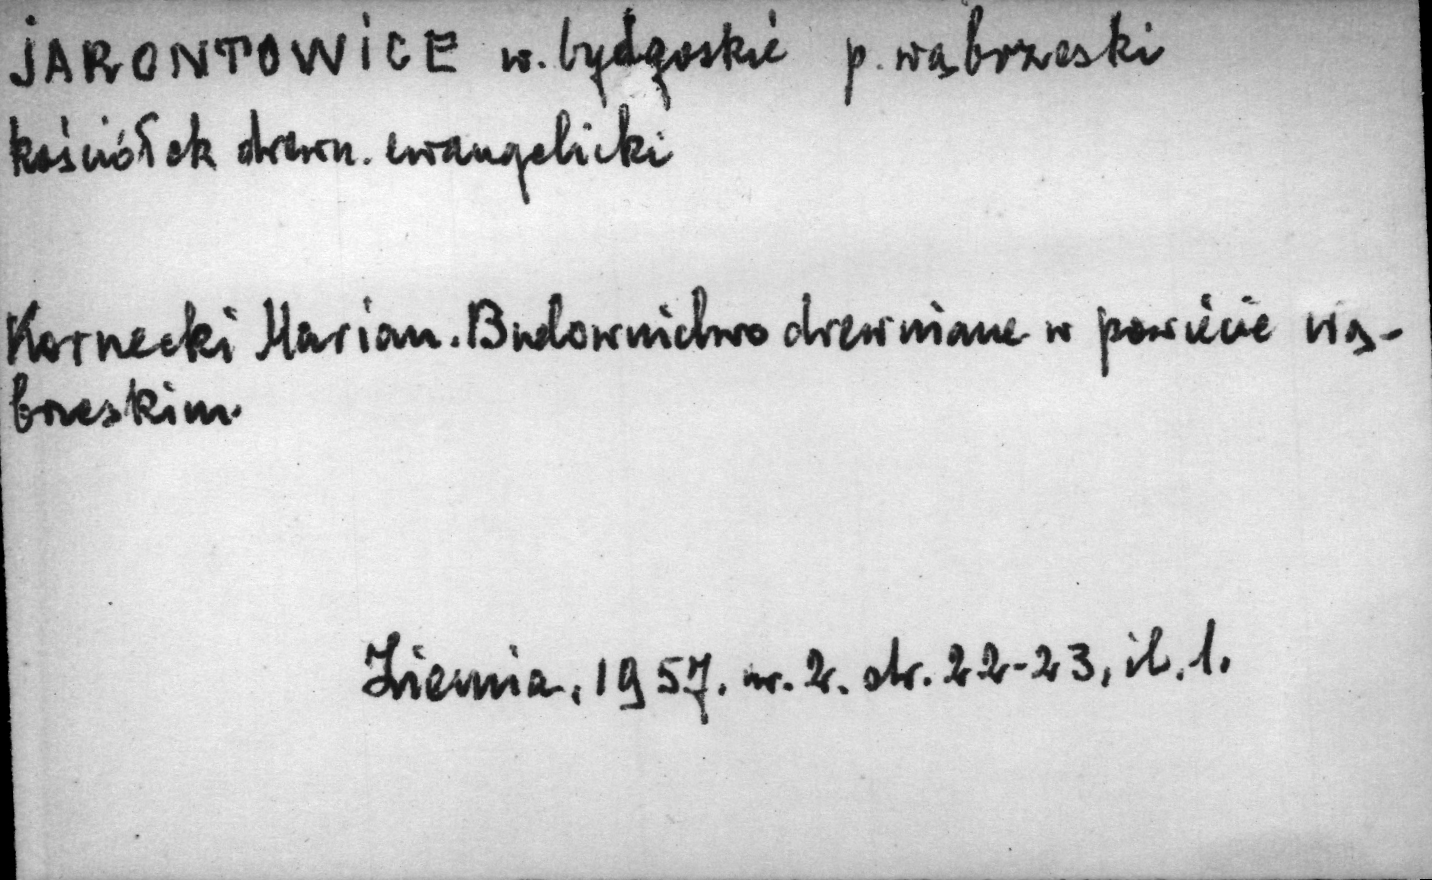 JARONTOWICE w. bydgoskie p. wąbrzeski
kościółek drewn. ewangelicki
Kornecki Marian. Budownictwo drewniane w powiecie wą-
brzeskim.
Ziemia, 1957. nr. 2. str. 22-23, il. 1.